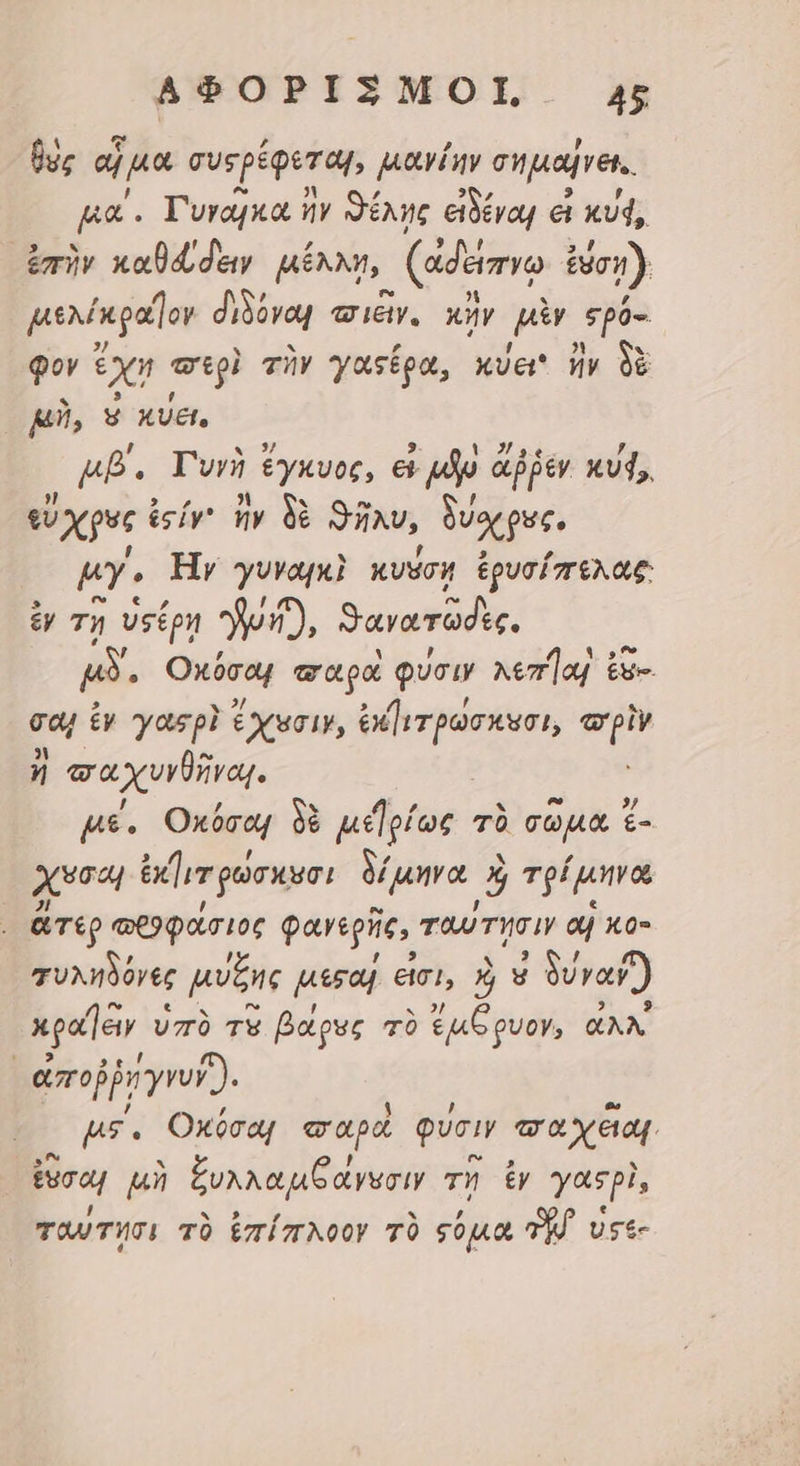 ΑΦΟΡΙΣΜΟΙ. 45
θὺς αἷμα συςρέφεται, μανίην σημαίνει.
μα΄. Γυναῖκα ἢν θέλης εἰδέναι εἰ κύει,
ἐπὴν καθεύδειν μέλλη, (ἀδείπνω ἐύση)
μελίκρατον διδόναι πιεῖν. κἢν μὲν ςρό-
φον ἔχη περὶ τὴν γαςέρα, κύει· ἢν δὲ
μὴ, ȣ κύει.
μβ΄. Γυνὴ ἔγκυος, εἰ μὲν ἄῤῥεν κύει,
εὔχρȣς ἐςίν· ἢν δὲ θῆλυ, δύσχρȣς.
μγ΄. Ην γυναικὶ κυȣ́ση ἐρυσίπελας
ἐν τῆ ὑςέρη γένηται, θανατῶδες.
μδ΄. Οκόσαι παρὰ φύσιν λεπταὶ ἐȣ͂-
σαι ἐν γαςρὶ ἔχȣσιν, ἐκτιτρώσκȣσι, πρὶν
ἢ παχυνθῆναι.
με΄. Οκόσαι δὲ μετρίως τὸ σῶμα ἔ-
χȣσαι ἐκτιτρώσκȣσι δίμηνα καὶ τρίμηνα
ἄτερ προφάσιος φανερῆς, ταύτησιν αἱ κο-
τυληδόνες μύξης μεςαί εἰσι, καὶ ȣ̓ δύναται
κρατεῖν ὑπὸ τȣ͂ βάρȣς τὸ ἔμβρυον, ἀλλ᾽
ἀποῤῥήγνυται.
μς΄. Οκόσαι παρὰ φύσιν παχεῖαι
ἐȣ͂σαι μὴ ξυλλαμβάνȣσιν τῆ ἐν γαςρὶ,
ταύτησι τὸ ἐπίπλοον τὸ ςόμα τῶν ὑςε-